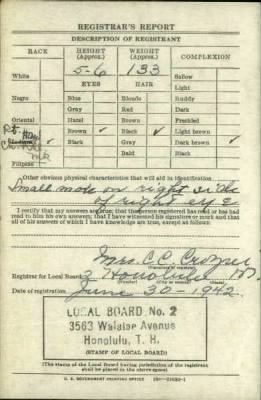 REGISTRAR'S REPORT
DESCRIPTION OF REGISTRANT
RACE
HEIGHT (Approx.)
WEIGHT (Approx.)
COMPLEXION
White
5-6
133
Sallow
EYES
HAIR
Light
Negro
Blue
Blonde
Ruddy
Gray
Red
Dark
Oriental
Hazel
Brown
Freckled
Brown ✓
Black ✓
Light brown
Black
Gray
Dark brown ✓
Bald
Black
Filipino
Other obvious physical characteristics that will aid in identification
Small mole on right side
of right eye
I certify that my answers are true; that the person registered has read or has had
read to him his own answers; that I have witnessed his signature or mark and that
all of his answers of which I have knowledge are true, except as follows:
Mrs. C. C.
Registrar for Local Board 2 Honolulu
Date of registration June 30-1942
LOCAL BOARD No. 2
3563 Waialae Avenue
Honolulu, T. H.
(STAMP OF LOCAL BOARD)
(The stamp of the Local Board having jurisdiction of the registrant
shall be placed in the above space)
U. S. GOVERNMENT PRINTING OFFICE